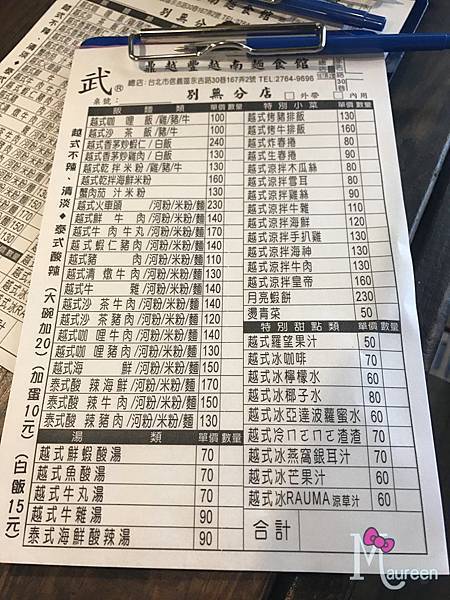 鼎越豐越南麵食館
武®
總店:台北市信義區永吉路30巷167弄2號 TEL:2764-9696
別無分店
桌號:
外帶 內用
越式不辣、清淡◆泰式酸辣
(大碗加20)(加蛋10元)(白飯15元)
飯麵類 單價 數量
越式咖哩飯/雞/豬/牛 100
越式沙茶飯/豬/牛 100
越式香茅炒蝦仁/白飯 240
越式香茅炒雞肉/白飯 130
越式乾拌米粉/雞/豬/牛 130
越式乾拌海鮮米粉 160
蟹肉茄汁米粉 130
越式火車頭/河粉/米粉/麵 230
越式鮮牛肉/河粉/米粉/麵 140
越式牛肉牛丸/河粉/米粉/麵 170
越式蝦仁豬肉/河粉/米粉/麵 140
越式豬肉/河粉/米粉/麵 110
越式清燉牛肉/河粉/米粉/麵 140
越式牛雜/河粉/米粉/麵 140
越式沙茶牛肉/河粉/米粉/麵 140
越式沙茶豬肉/河粉/米粉/麵 120
越式咖哩牛肉/河粉/米粉/麵 140
越式咖哩豬肉/河粉/米粉/麵 130
越式海鮮/河粉/米粉/麵 150
泰式酸辣海鮮/河粉/米粉/麵 170
泰式酸辣牛肉/河粉/米粉/麵 150
泰式酸辣豬肉/河粉/米粉/麵 130
湯類 單價 數量
越式鮮蝦酸湯 70
越式魚酸湯 70
越式牛丸湯 70
越式牛雜湯 90
泰式海鮮酸辣湯 90
特別小菜 單價 數量
越式烤豬排飯 130
越式烤牛排飯 160
越式炸春捲 80
越式生春捲 90
越式涼拌木瓜絲 80
越式涼拌雪耳 80
越式涼拌雞絲 80
越式涼拌牛雜 110
越式涼拌海鮮 120
越式涼拌手扒雞 130
越式涼拌海神 130
越式涼拌牛肉 130
越式涼拌皇帝 160
月亮蝦餅 230
燙青菜 50
特別甜點類 單價 數量
越式羅望果汁 50
越式冰咖啡 70
越式冰檸檬水 60
越式冰椰子水 80
越式冰亞達波蘿蜜水 60
越式冷ㄇㄛㄇㄛ渣渣 70
越式冰燕窩銀耳汁 70
越式冰芒果汁 60
越式冰RAUMA涼草汁 60
合計
Maureen